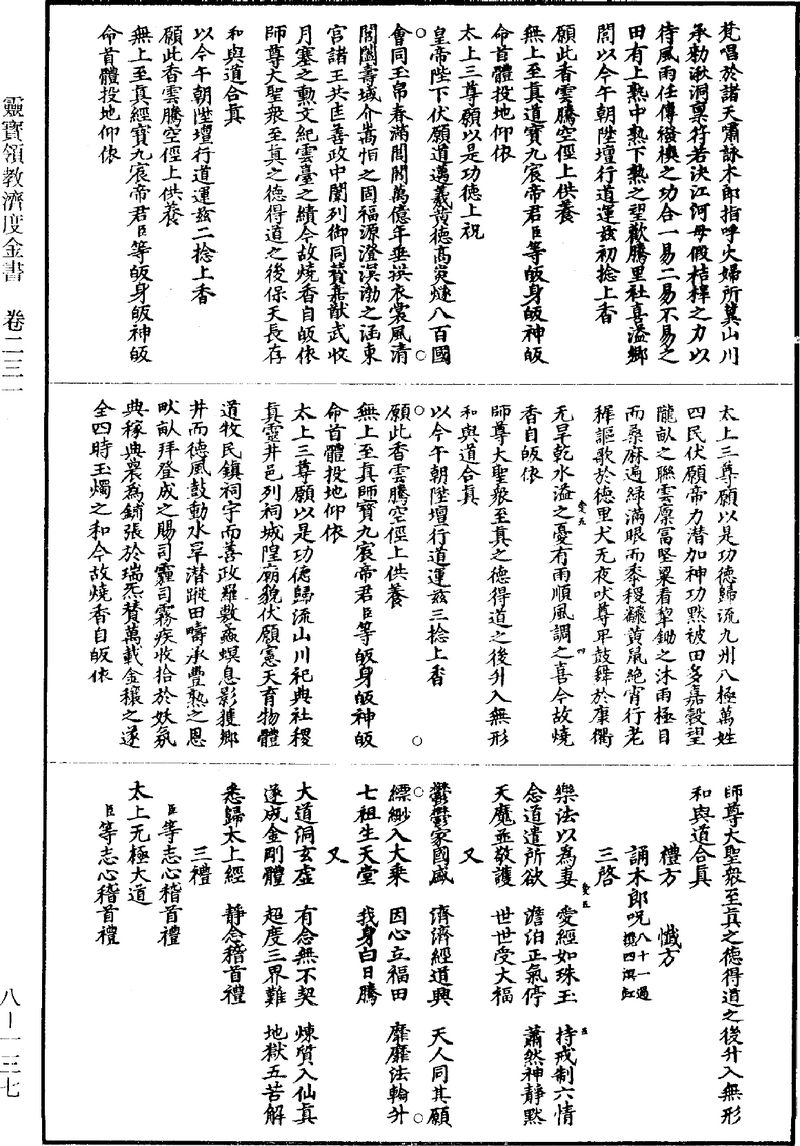 靈寶領教濟度金書 卷二三一
八—一三七
梵唱於諸天嘯詠木郎指呼火婦所冀山川
承勑湫洞稟符若決江河毋假桔槔之力以
待風雨任傳發機之功合一易二易不易之
田有上熟中熟下熟之望歡騰里社喜溢鄉
閭以今午朝陞壇行道運茲初捻上香
願此香雲騰空徑上供養
無上至真道寶九宸帝君臣等皈身皈神皈
命首體投地仰依
太上三尊願以是功德上祝
皇帝陛下伏願道邁羲黃德高炎燧八百國
會同玉帛春滿閭閻萬億年垂拱衣裳風清
閶闔壽域介嵩恒之固福源澄溟渤之涵東
宮諸王共隆善政中闈列御同贊嘉猷武收
月寨之勳文紀雲臺之績今故燒香自皈依
師尊大聖衆至真之德得道之後保天長存
和與道合真
以今午朝陞壇行道運茲二捻上香
願此香雲騰空徑上供養
無上至真經寶九宸帝君臣等皈身皈神皈
命首體投地仰依
太上三尊願以是功德歸流九州八極萬姓
四民伏願帝力潛加神功黙被田多嘉穀望
隴畝之聯雲廩富堅粟看犂鋤之沐雨極目
而桑麻遍綠滿眼而黍稷䊯黃鼠絕宵行老
穉謳歌於德里犬无夜吠尊平鼓舞於康衢
无旱乾水溢之憂有雨順風調之喜今故燒
香自皈依
師尊大聖衆至真之德得道之後升入無形
和與道合真
以今午朝陞壇行道運茲三捻上香
願此香雲騰空徑上供養
無上至真師寶九宸帝君臣等皈身皈神皈
命首體投地仰依
太上三尊願以是功德歸流山川祀典社稷
真靈井邑列祠城隍廟貌伏願憲天育物體
道牧民鎮祠宇而善政羅敷蟊螟息影獲鄉
井而德風鼓動水旱潛蹤田疇承豐熟之恩
畎畝拜登成之賜司霾司霧疾收拾於妖氛
典稼典農為鋪張於瑞炁贊萬載金穰之遂
全四時玉燭之和今故燒香自皈依
師尊大聖衆至真之德得道之後升入無形
和與道合真
禮方 懺方
誦木郎呪八十一遍
三啓
樂法以為妻 愛經如珠玉 持戒制六情
念道遣所欲 澹泊正氣停 蕭然神靜黙
天魔並敬護 世世受大福
又
鬱鬱家國盛 濟濟經道興 天人同其願
縹緲入大乘 因心立福田 靡靡法輪升
七祖生天堂 我身白日騰
又
大道洞玄虛 有念無不契 煉質入仙真
遂成金剛體 超度三界難 地獄五苦解
悉歸太上經 靜念稽首禮
三禮
臣等志心稽首禮
太上无極大道
臣等志心稽首禮